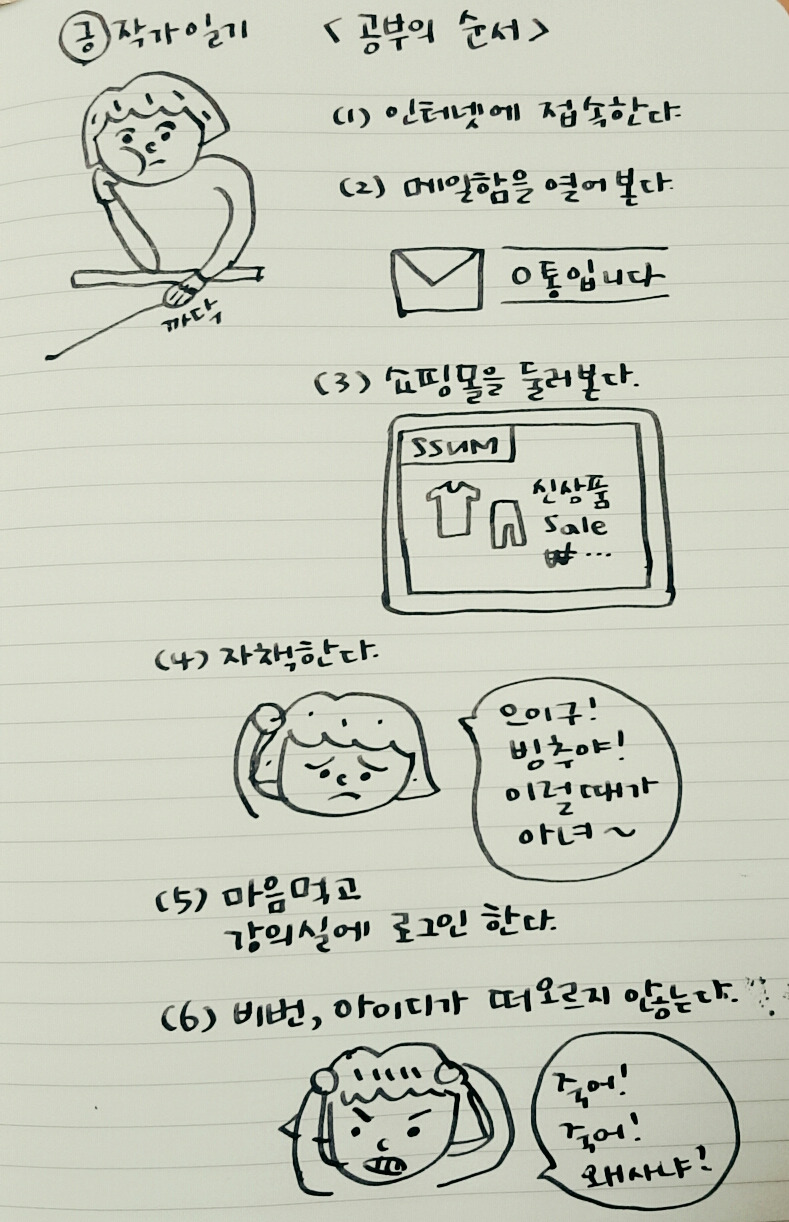 공작가일기 <공부의 순서>
(1) 인터넷에 접속한다.
(2) 메일함을 열어본다.
0통입니다
까닥
(3) 쇼핑몰을 둘러본다.
SSUM
신상품
Sale
₩...
(4) 자책한다.
으이구!
빙추야!
이럴때가
아녀~
(5) 마음먹고
강의실에 로그인 한다.
(6) 비번, 아이디가 떠오르지 않는다.
죽어!
죽어!
왜사냐!